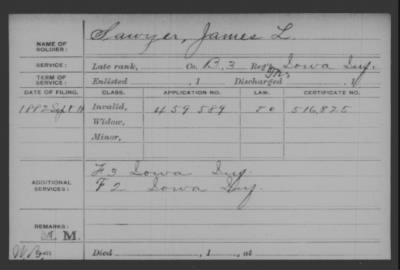 NAME OF SOLDIER: Sawyer, James L.
SERVICE: Late rank, Co. B, 3 Reg't Iowa Inf.
TERM OF SERVICE: Enlisted , 1 Discharged , 1
DATE OF FILING. CLASS. APPLICATION NO. LAW. CERTIFICATE NO.
1882 Sept Invalid, 459 589 516,825
Widow,
Minor,
ADDITIONAL SERVICES: F 3 Iowa Inf.
F 2 Iowa Inf.
REMARKS: M. M.
Died , 1 , at